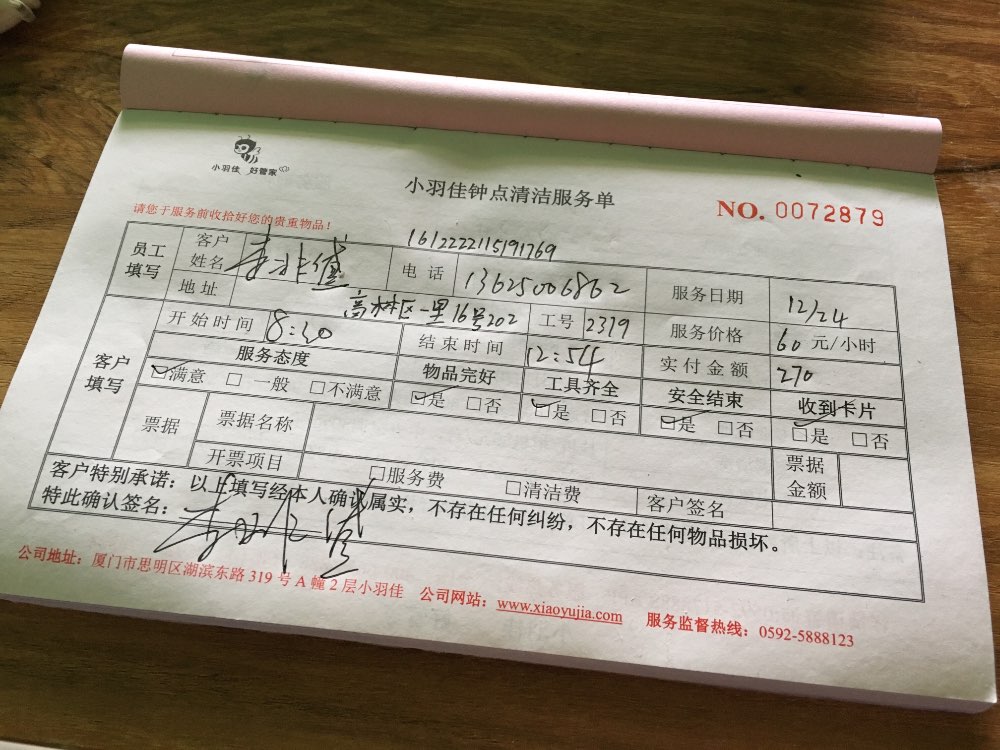 小羽佳 好管家
小羽佳钟点清洁服务单
NO. 0072879
请您于服务前收拾好您的贵重物品！
1612222115191769
员工填写 客户姓名 电话 13625006862 服务日期 12/24
地址 高林区一里16号202 工号 2319 服务价格 60 元/小时
客户填写 开始时间 8:30 结束时间 12:54 实付金额 270
服务态度 物品完好 工具齐全 安全结束 收到卡片
☑满意 □一般 □不满意 ☑是 □否 ☑是 □否 ☑是 □否 □是 □否
票据 票据名称 票据金额
开票项目 □服务费 □清洁费 客户签名
客户特别承诺：以上填写经本人确认属实，不存在任何纠纷，不存在任何物品损坏。
特此确认签名：
公司地址：厦门市思明区湖滨东路 319 号 A 幢 2 层小羽佳 公司网站：www.xiaoyujia.com 服务监督热线：0592-5888123